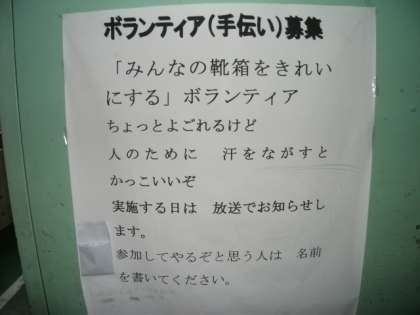 ボランティア（手伝い）募集
「みんなの靴箱をきれい
にする」ボランティア
ちょっとよごれるけど
人のために　汗をながすと
かっこいいぞ
実施する日は　放送でお知らせし
ます。
参加してやるぞと思う人は　名前
を書いてください。